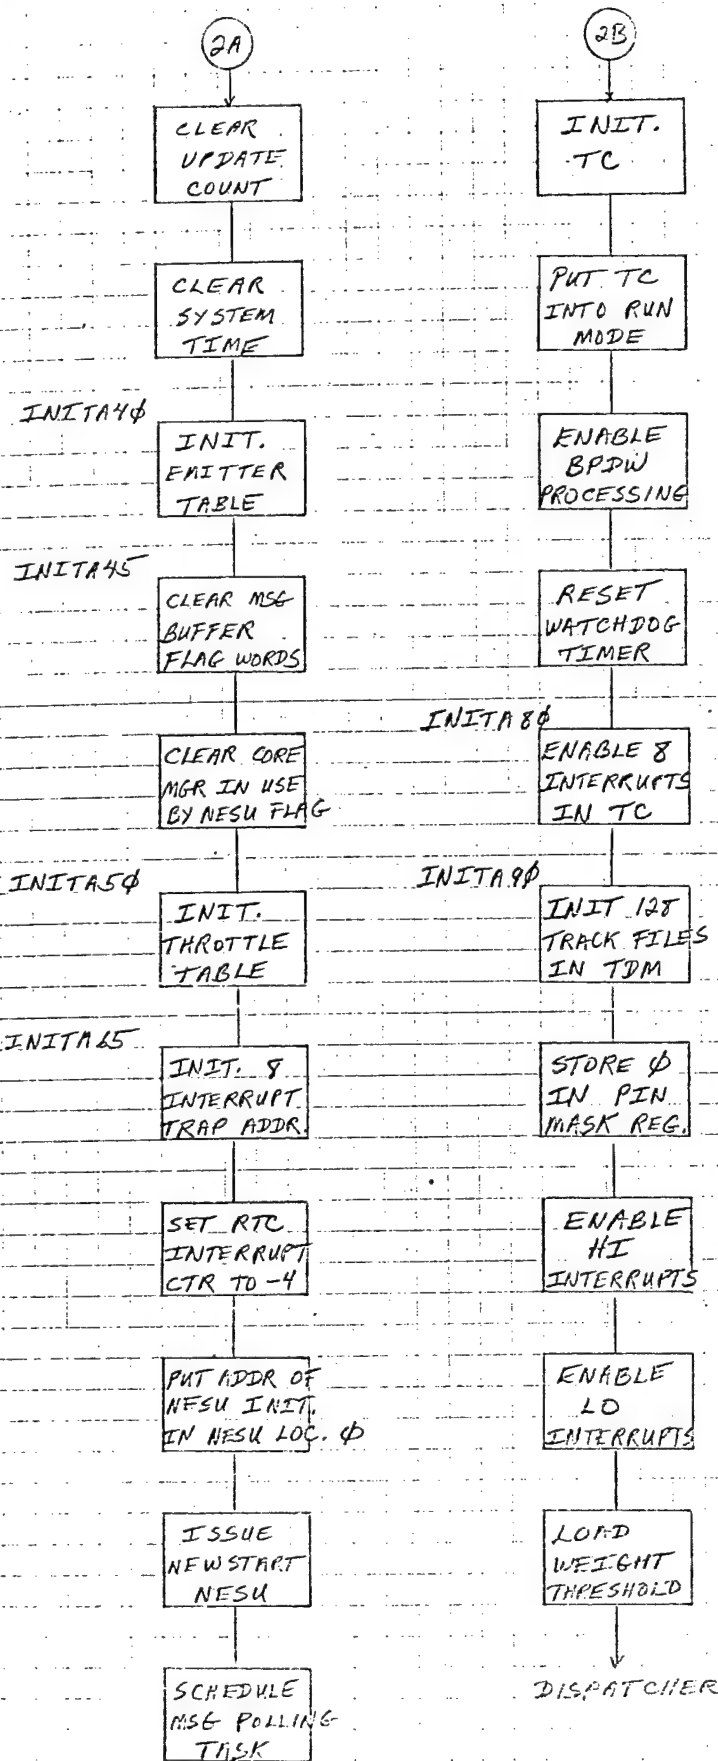 2A
CLEAR
UPDATE
COUNT
CLEAR
SYSTEM
TIME
INITA4φ
INIT.
EMITTER
TABLE
INITA45
CLEAR MSG
BUFFER
FLAG WORDS
CLEAR CORE
MGR IN USE
BY NESU FLAG
INITA5φ
INIT.
THROTTLE
TABLE
INITA65
INIT. 8
INTERRUPT
TRAP ADDR.
SET RTC
INTERRUPT
CTR TO -4
PUT ADDR OF
NESU INIT.
IN NESU LOC. φ
ISSUE
NEWSTART
NESU
SCHEDULE
MSG POLLING
TASK
2B
INIT.
TC
PUT TC
INTO RUN
MODE
ENABLE
BPDW
PROCESSING
RESET
WATCHDOG
TIMER
INITA8φ
ENABLE 8
INTERRUPTS
IN TC
INITA9φ
INIT 128
TRACK FILES
IN TDM
STORE φ
IN PIN
MASK REG.
ENABLE
HI
INTERRUPTS
ENABLE
LO
INTERRUPTS
LOAD
WEIGHT
THRESHOLD
DISPATCHER